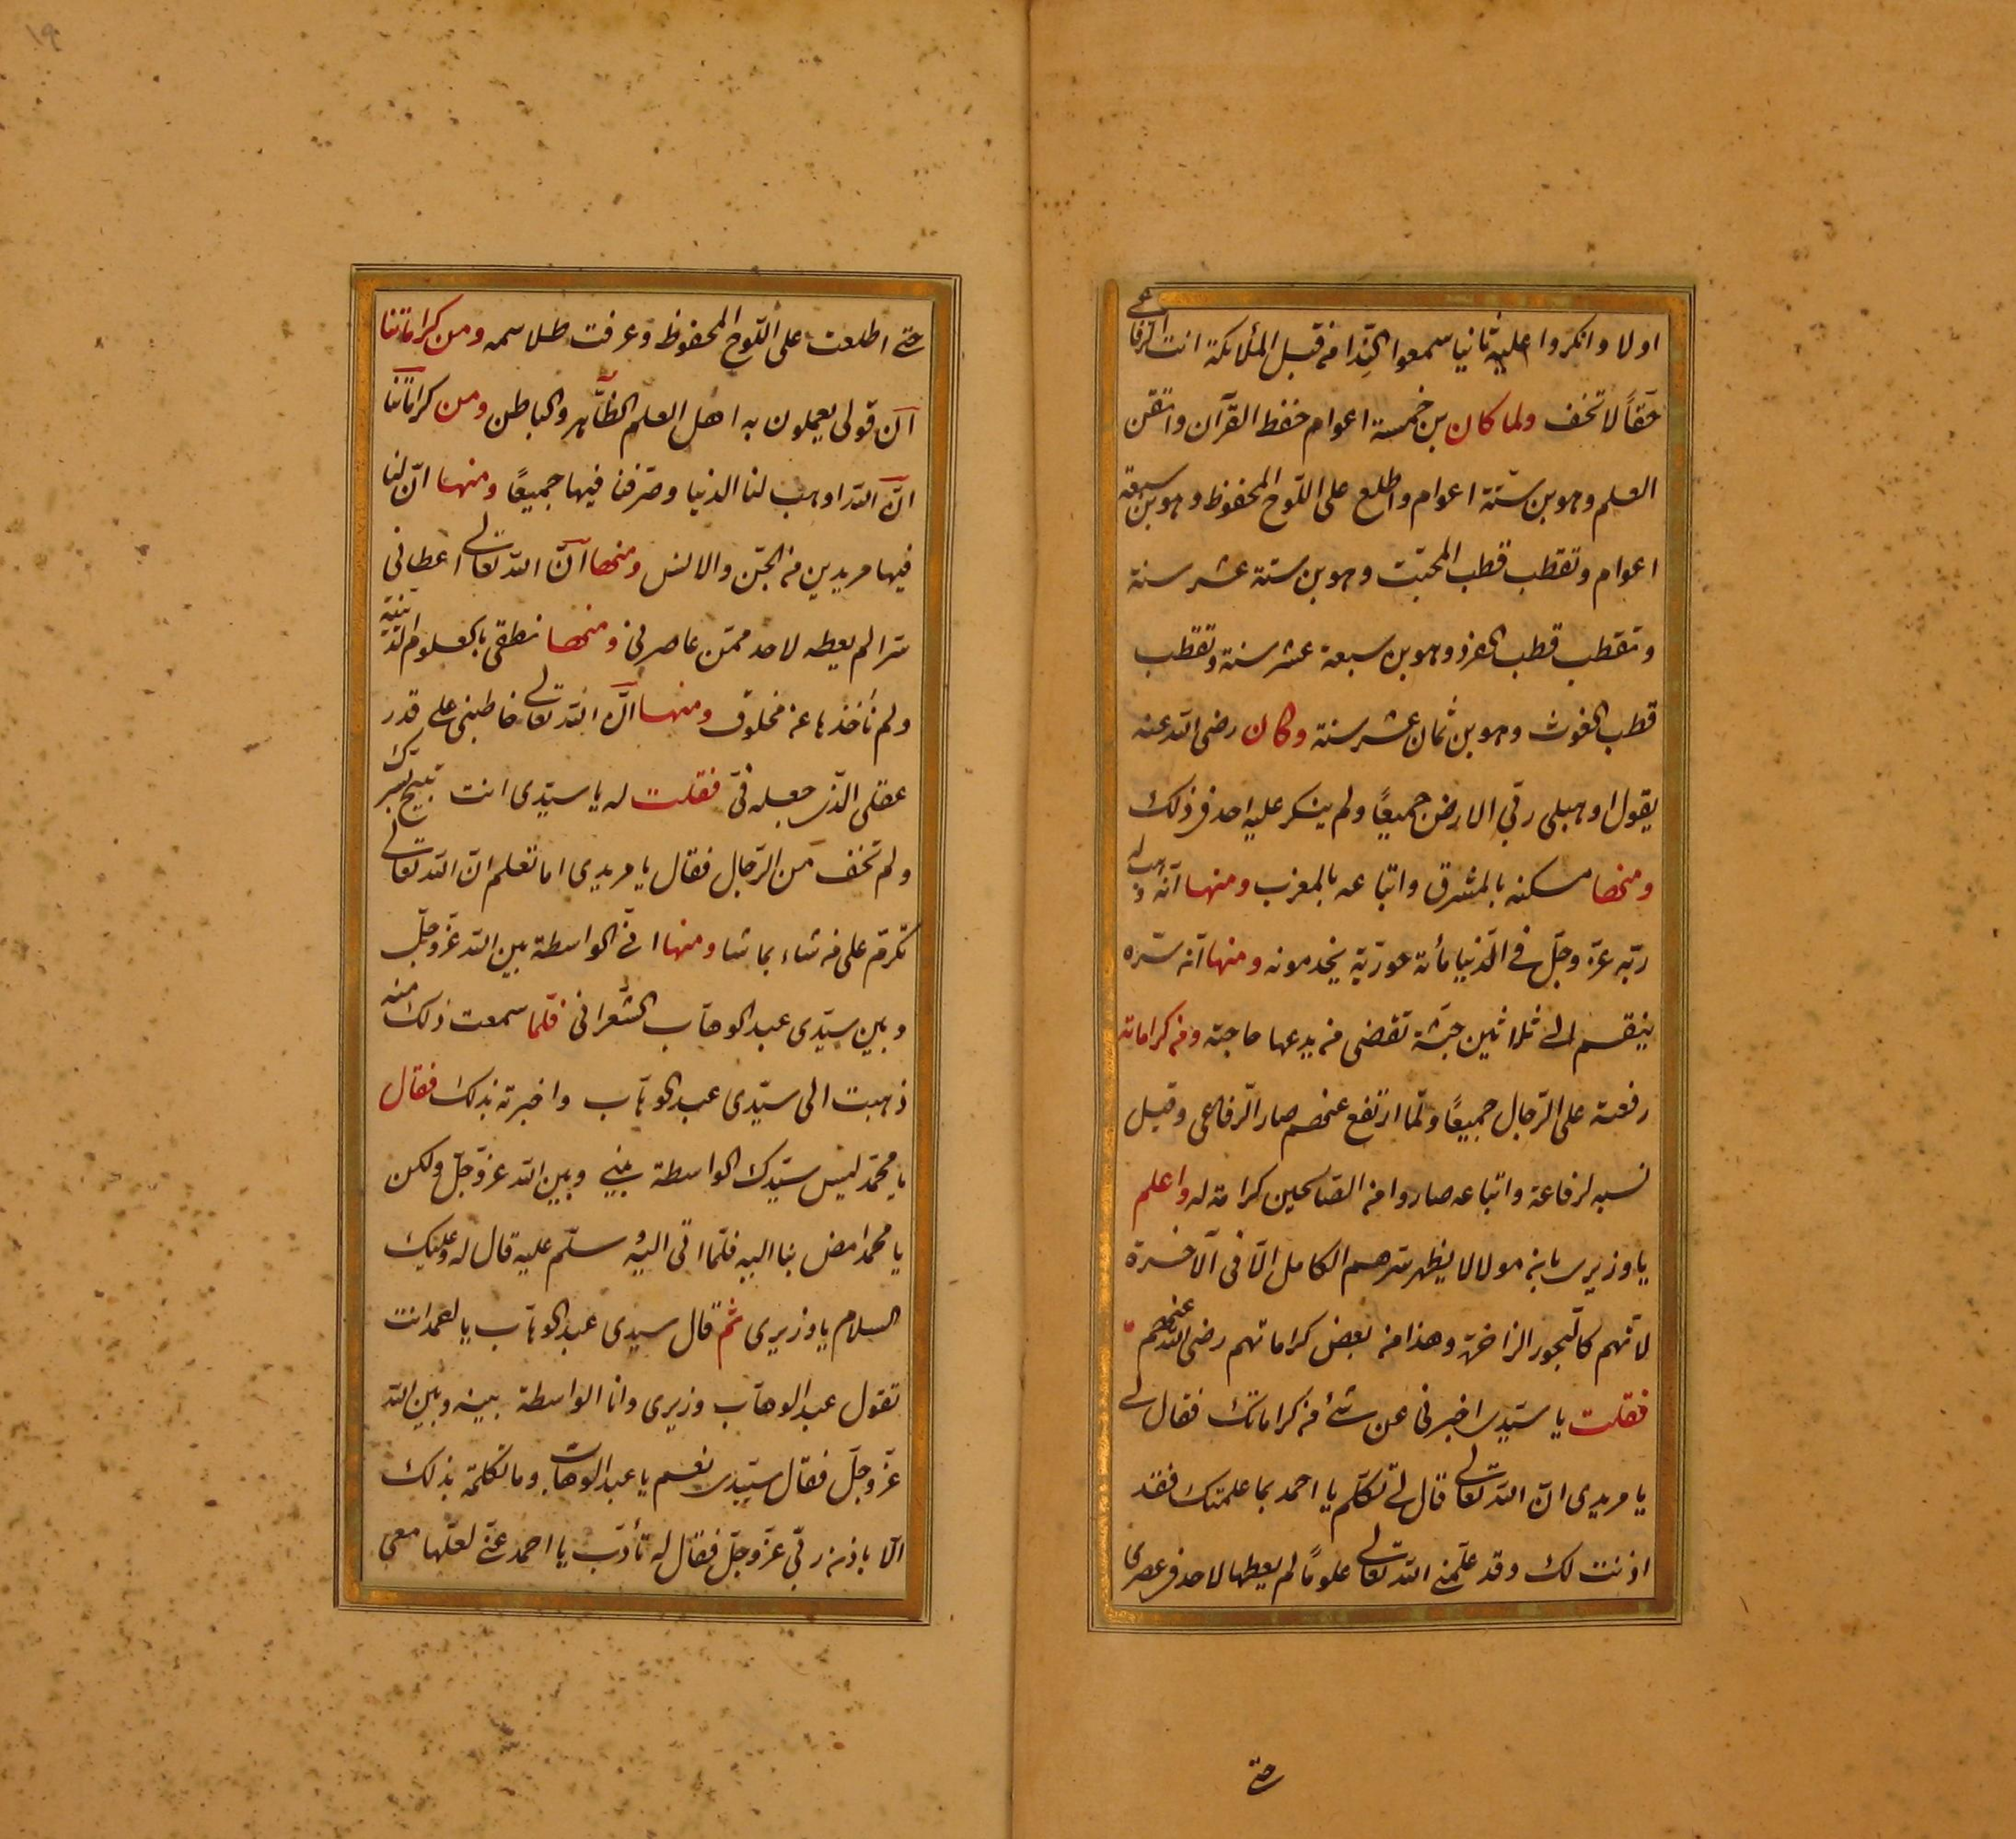 اولا وانكروا عليه ثانيا سمعوا النّدا من قبل الملائكة انت الرفاعى
حقاً لا تخف ولما كان بن خمسة اعوام حفظ القرآن واتقن
العلم وهو بن ستّة اعوام واطلع على اللّوح المحفوظ وهو بن سبعة
اعوام وتقطب قطب المحبّت وهو بن ستة عشر سنة
وتقطب قطب الفرد وهو بن سبعة عشر سنة وتقطب
قطب الغوث وهو بن ثمان عشر سنة وكان رضى الله عنه
يقول اوهبلى ربّى الارض جميعًا ولم ينكر عليه احد فى ذلك
ومنها مسكنه بالمشرق واتباعه بالمغرب ومنها انّه وهب له
ربّه عزّ وجلّ فى الدّنيا مأئة حوريّة يخدمونه ومنها انّه سرّه
ينقسم الى ثلاثين جثّة تقضى من يدعها حاجته ومن كراماته
رفعته على الرّجال جميعًا ولمّا ارتفع عنهم صار الرّفاعى وقيل
نسبه لرفاعة واتباعه صاروا من الصّالحين كرامة له واعلم
يا وزيرى بانه مولا لا يظهر سرهم الكامل الّا فى الآخرة
لانّهم كالبحور الزاخرة وهذا من بعض كراماتهم رضى الله عنهم
فقلت يا سيّدى اخبرنى عن شئ من كراماتك فقال لى
يا مريدى انّ الله تعالى قال لى تكلّم يا احمد بما علمتك فقد
اذنت لك وقد علّمنى الله تعالى علومًا لم يعطها لاحد فى عصرى
حتى
١٩
حتى اطلعت على اللّوح المحفوظ وعرفت طلاسمه ومن كراماتنا
انّ قولى يعملون به اهل العلم الظّاهر والباطن ومن كراماتنا
انّ الله اوهب لنا الدنيا وصرّفنا فيها جميعًا ومنها انّ لنا
فيها مريدين من الجنّ والانس ومنها انّ الله تعالى اعطانى
سرا لم يعطه لاحد ممّن عاصرنى ومنها نطقى بالعلوم اللدنّية
ولم نأخذها عن مخلوق ومنها انّ الله تعالى خاطبنى على قدر
عقلى الّذى جعله فىّ فقلت له يا سيّدى انت تبيح بسرّك
ولم تخف من الرّجال فقال يا مريدى اما تعلم انّ الله تعالى
تكرّم على من شاء بما شا ومنها انّى الواسطة بين الله عزّ وجلّ
وبين سيّدى عبد الوهاب الشّعرانى فلمّا سمعت ذلك منه
ذهبت الى سيّدى عبد الوهّاب واخبرته بذلك فقال
يا محمّد ليس سيّدك الواسطة بينى وبين الله عزّ وجلّ ولكن
يا محمد امض بنا اليه فلمّا اتى اليه وسلّم عليه قال له وعليك
السلام يا وزيرى ثم قال سيدى عبد الوهّاب يا احمد انت
تقول عبد الوهاب وزيرى وانا الواسطة بينه وبين الله
عزّ وجلّ فقال سيّدى نعم يا عبد الوهاب وما تكلّمت بذلك
الّا باذن ربّى عزّ وجلّ فقال له تأدّب يا احمد عنّى لعلّها معى